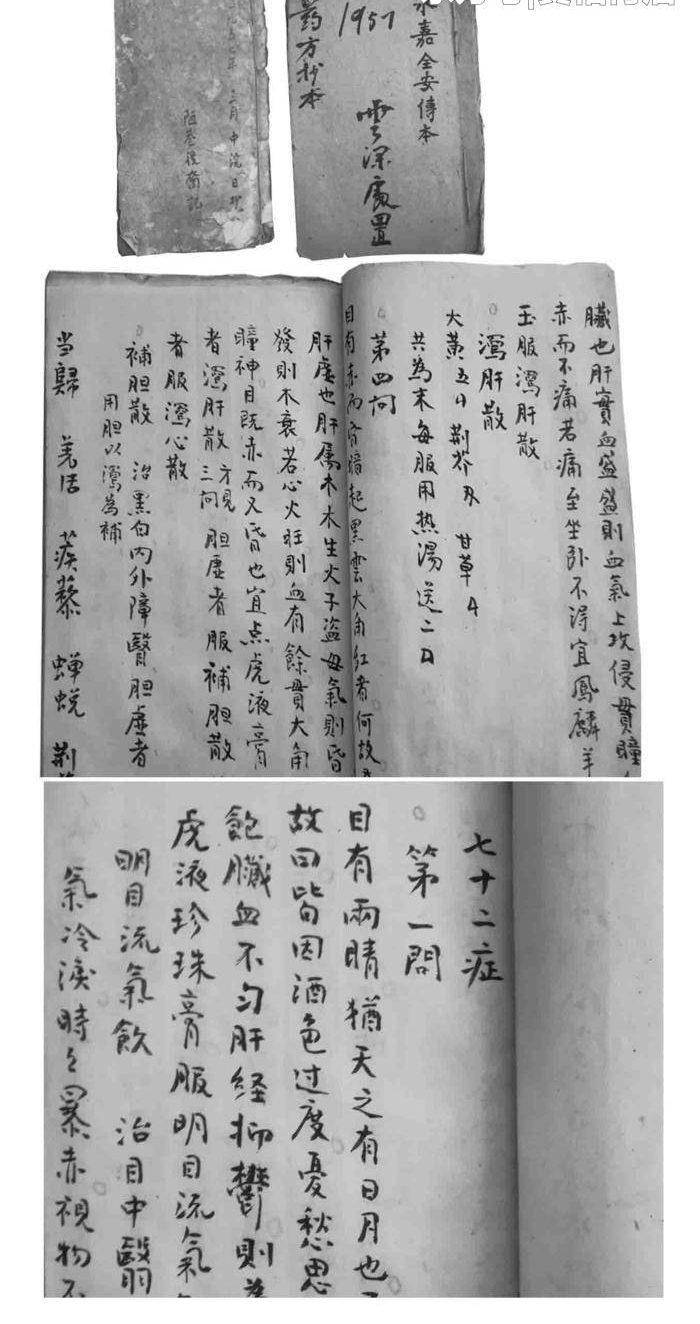 三月中浣日
永嘉全安傳本
1957
雲深處置
药方抄本
臟也肝實血盛盛則血氣上攻侵貫瞳
赤而不痛若痛至坐卧不得宜鳳麟羊
玉服瀉肝散
瀉肝散
大黃五 荆芥 甘草
共為末每服用热湯送二
第四问
目有赤而昏暗起黑雲大角红者何故
肝虛也肝属木木生火子盗母氣則昏
發則木衰若心火旺則血有餘貫大角
瞳神目既赤而又昏也宜点虎液膏
者瀉肝散 方見三问 胆虛者服補胆散
者服瀉心散
補胆散 治黑白内外障醫胆虛者
用胆以瀉為補
当歸 羌活 蒺藜 蝉蜕 荆
七十二症
第一問
目有兩睛猶天之有日月也
故曰皆因酒色过度憂愁思
飽臟血不匀肝经抑鬱則
虎液珍珠膏服明目流氣
明目流氣飲 治目中翳
氣冷淚時々暴赤視物不